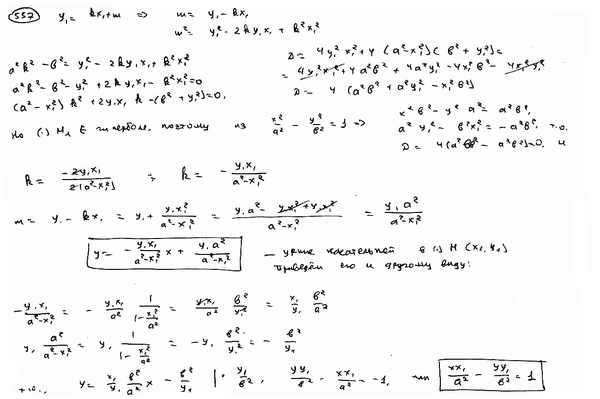 557 y₁ = kx₁+m ⇒ m = y₁ - kx₁
m² = y₁² - 2k y₁x₁ + k²x₁²
a²k² - b² = y₁² - 2k y₁x₁ + k²x₁²
a²k² - b² - y₁² + 2k y₁x₁ - k²x₁² = 0
(a² - x₁²) k² + 2y₁x₁ k - (b² + y₁²) = 0.
D = 4y₁²x₁² + 4 (a² - x₁²)(b² + y₁²) =
= 4y₁²x₁² + 4a²b² + 4a²y₁² - 4x₁²b² - 4x₁²y₁²
D = 4 (a²b² + a²y₁² - x₁²b²)
Но (·) M₁ ∈ гиперболе, поэтому из x²/a² - y²/b² = 1 ⇒
x²b² - y²a² = a²b²,
a²y₁² - b²x₁² = -a²b², т.о.
D = 4(a²b² - a²b²) = 0, и
k = -2y₁x₁/2(a²-x₁²) ; k = - y₁x₁/a²-x₁²
m = y₁ - kx₁ = y₁ + y₁x₁²/a²-x₁² = y₁a² - y₁x₁² + y₁x₁²/a²-x₁² = y₁a²/a²-x₁²
y = - y₁x₁/a²-x₁² x + y₁a²/a²-x₁² — ур-ие касательной в (·) M (x₁, y₁)
Приведём его к другому виду:
- y₁x₁/a²-x₁² = - y₁x₁/a² · 1/1-x₁²/a² = y₁x₁/a² · b²/y₁² = x₁/y₁ · b²/a²
y₁ a²/a²-x₁² = y₁ 1/1-x₁²/a² = -y₁ b²/y₁² = - b²/y₁
т.о., y = x₁/y₁ b²/a² x - b²/y₁ | · y₁/b², yy₁/b² - xx₁/a² = -1, или xx₁/a² - yy₁/b² = 1